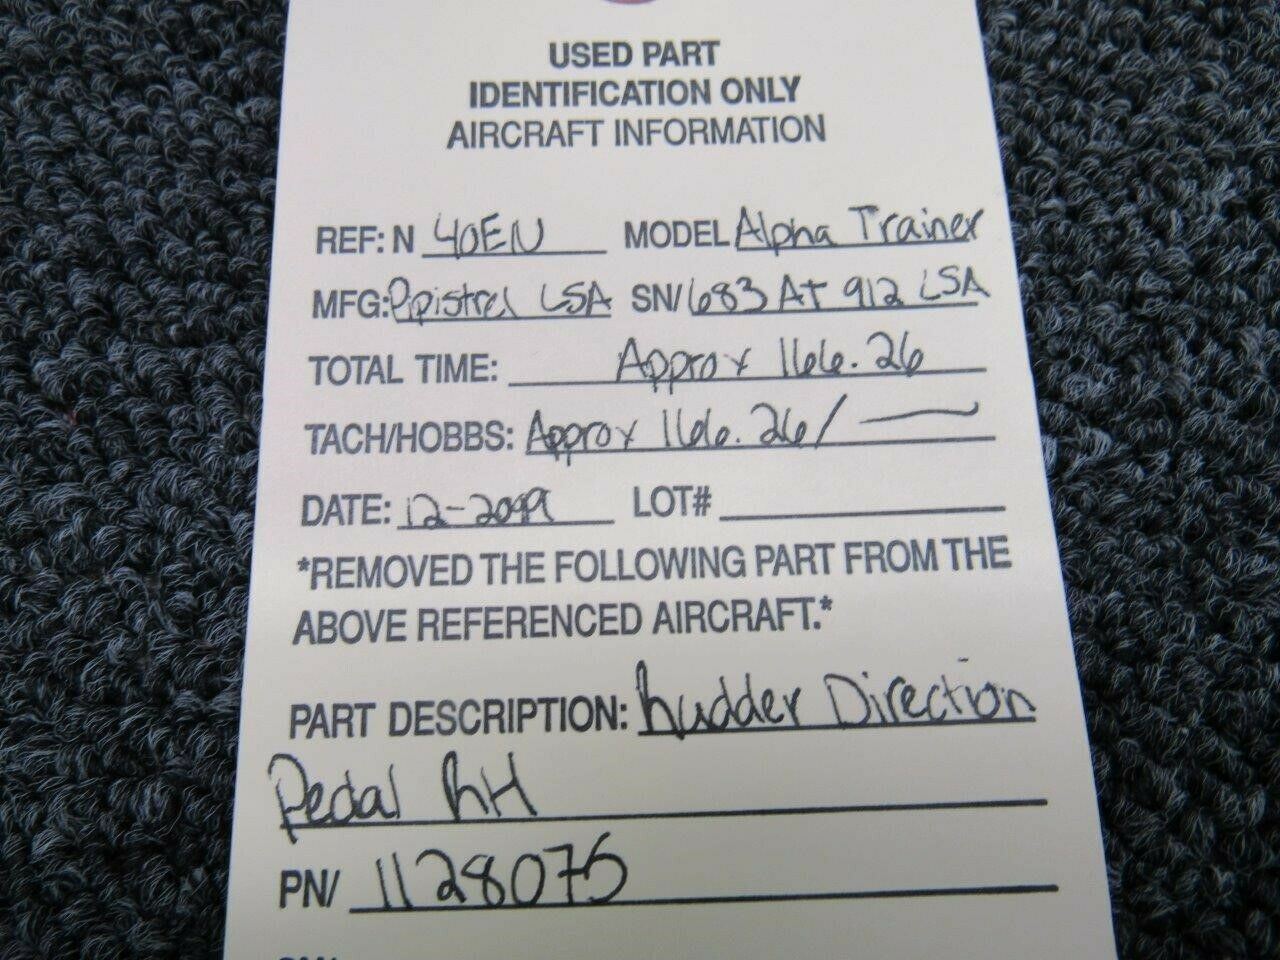 USED PART
IDENTIFICATION ONLY
AIRCRAFT INFORMATION
REF: N 40EN MODEL Alpha Trainer
MFG: Pipistrel LSA SN/ 683 AT 912 LSA
TOTAL TIME: Approx 166.26
TACH/HOBBS: Approx 166.26/ —
DATE: 12-2099 LOT#
*REMOVED THE FOLLOWING PART FROM THE
ABOVE REFERENCED AIRCRAFT.*
PART DESCRIPTION: Rudder Direction
Pedal RH
PN/ 1128075